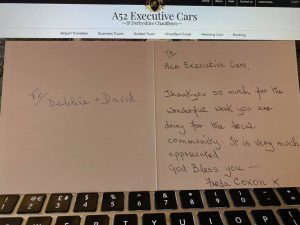 A52 Executive Cars
& Derbyshire Chauffeurs
Airport Transfers Business Travel Guided Tours Chauffeur Travel Wedding Cars Booking
To
Debbie + David
To
Ace Executive Cars,
Thankyou so much for the
wonderful work you are
doing for the local
community. It is very much
appreciated
God Bless you —
Freda Coxon x